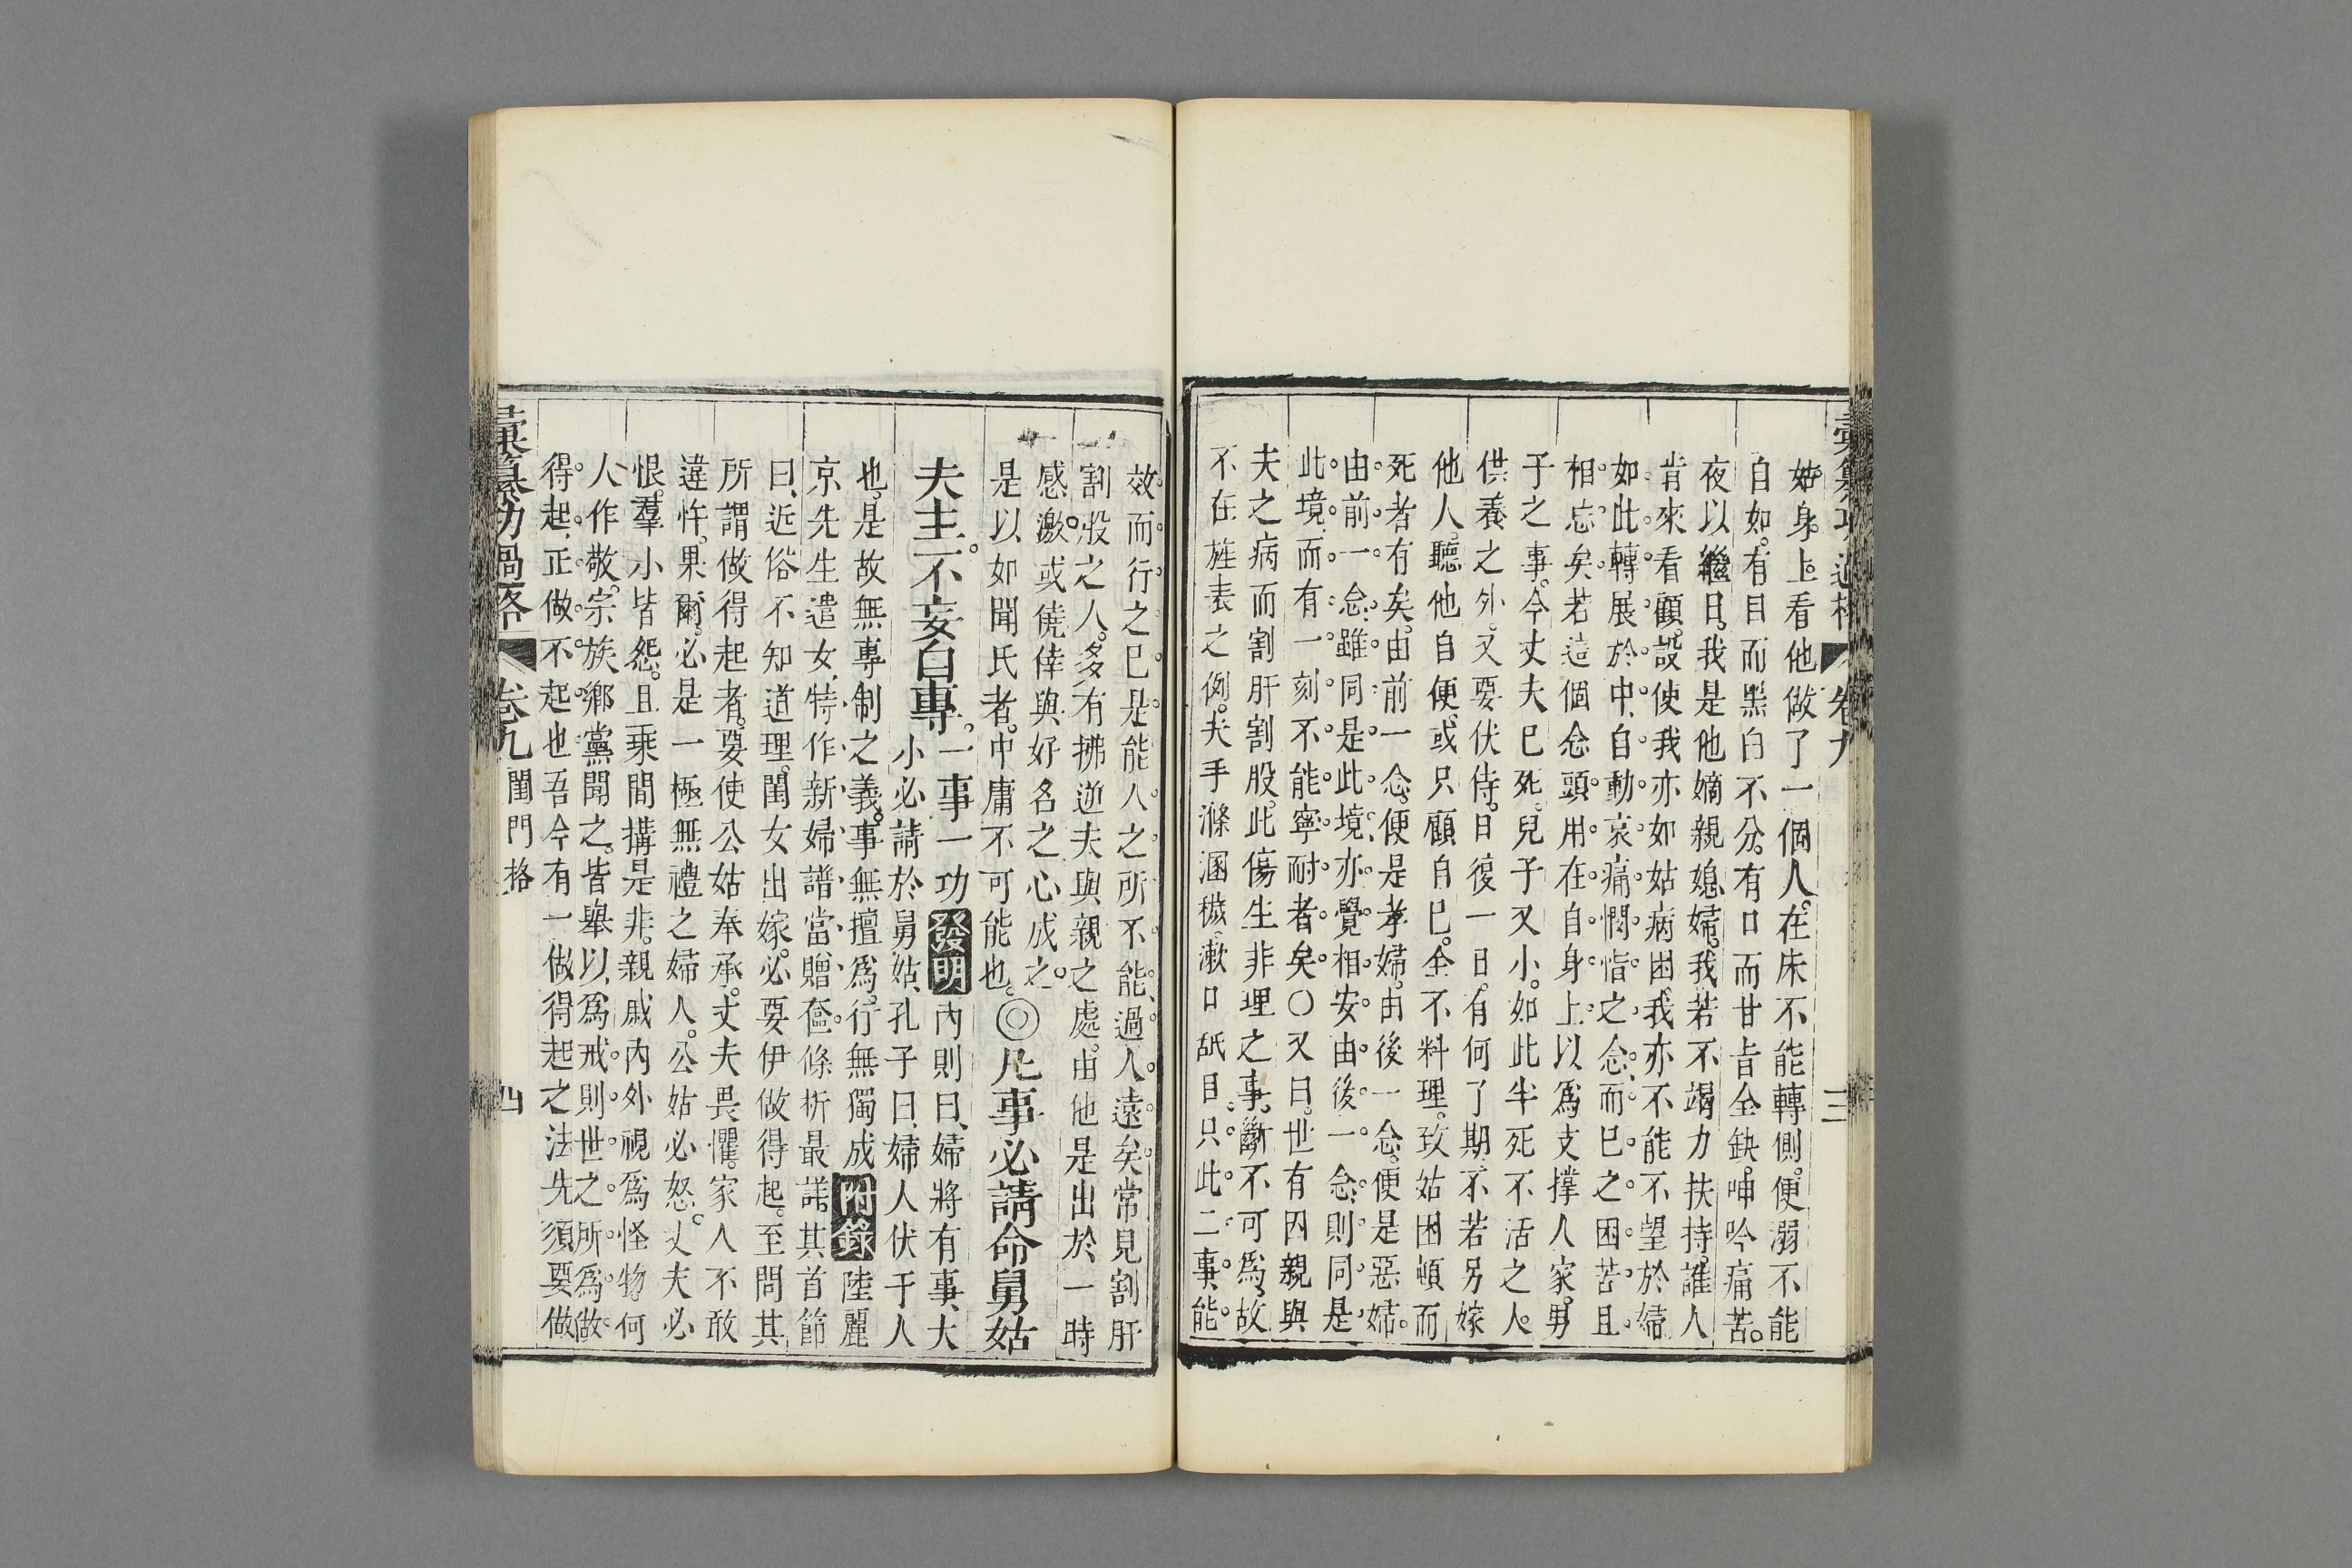 彙纂功過格 卷九 三
姑身上。看他做了一個人。在床不能轉側。便溺不能
自如。有目而黑白不分。有口而甘旨全缺。呻吟痛苦。
夜以繼日。我是他嫡親媳婦。我若不竭力扶持。誰人
肯來看顧。設使我亦如姑病困。我亦不能不望於婦。
如此轉展於中。自動哀痛憫恤之念。而已之困苦。且
相忘矣。若這個念頭。用在自身上。以爲支撐人家。男
子之事。今丈夫已死。兒子又小。如此半死不活之人。
供養之外。又要伏侍。日復一日。有何了期。不若另嫁
他人。聽他自便。或只顧自已。全不料理。致姑困頓而
死者有矣。由前一念。便是孝婦。由後一念。便是惡婦。
由前一念。雖同是此境。亦覺相安。由後一念。則同是
此境。而有一刻不能寧耐者矣。○又曰。世有因親與
夫之病而割肝割股。此傷生非理之事。斷不可爲。故
不在旌表之例。夫手滌溷穢。漱口舐目。只此二事。能
效而行之。已是能人之所不能。過人遠矣。常見割肝
割股之人。多有拂逆夫與親之處。由他是出於一時
感激。或僥倖與好名之心成之。
是以如聞氏者。中庸不可能也。◎凡事必請命舅姑
夫主。不妄自專。一事一功 發明 內則曰、婦將有事、大
小必請於舅姑、孔子曰、婦人伏于人
也。是故無專制之義。事無擅爲。行無獨成 附錄 陸麗
京先生遣女、特作新婦譜當贈奩。條析最詳。其首節
曰、近俗不知道理。閨女出嫁。必要伊做得起。至問其
所謂做得起者。要使公姑奉承。丈夫畏懼。家人不敢
違忤。果爾。必是一極無禮之婦人。公姑必怒。丈夫必
恨。羣小皆怨。且乘間搆是非。親戚內外。視爲怪物。何
人作敬。宗族鄉黨聞之。皆舉以爲戒。則世之所爲做
得起。正做不起也。吾今有一做得起之法。先須要做
彙纂功過格 卷九 閨門格 四